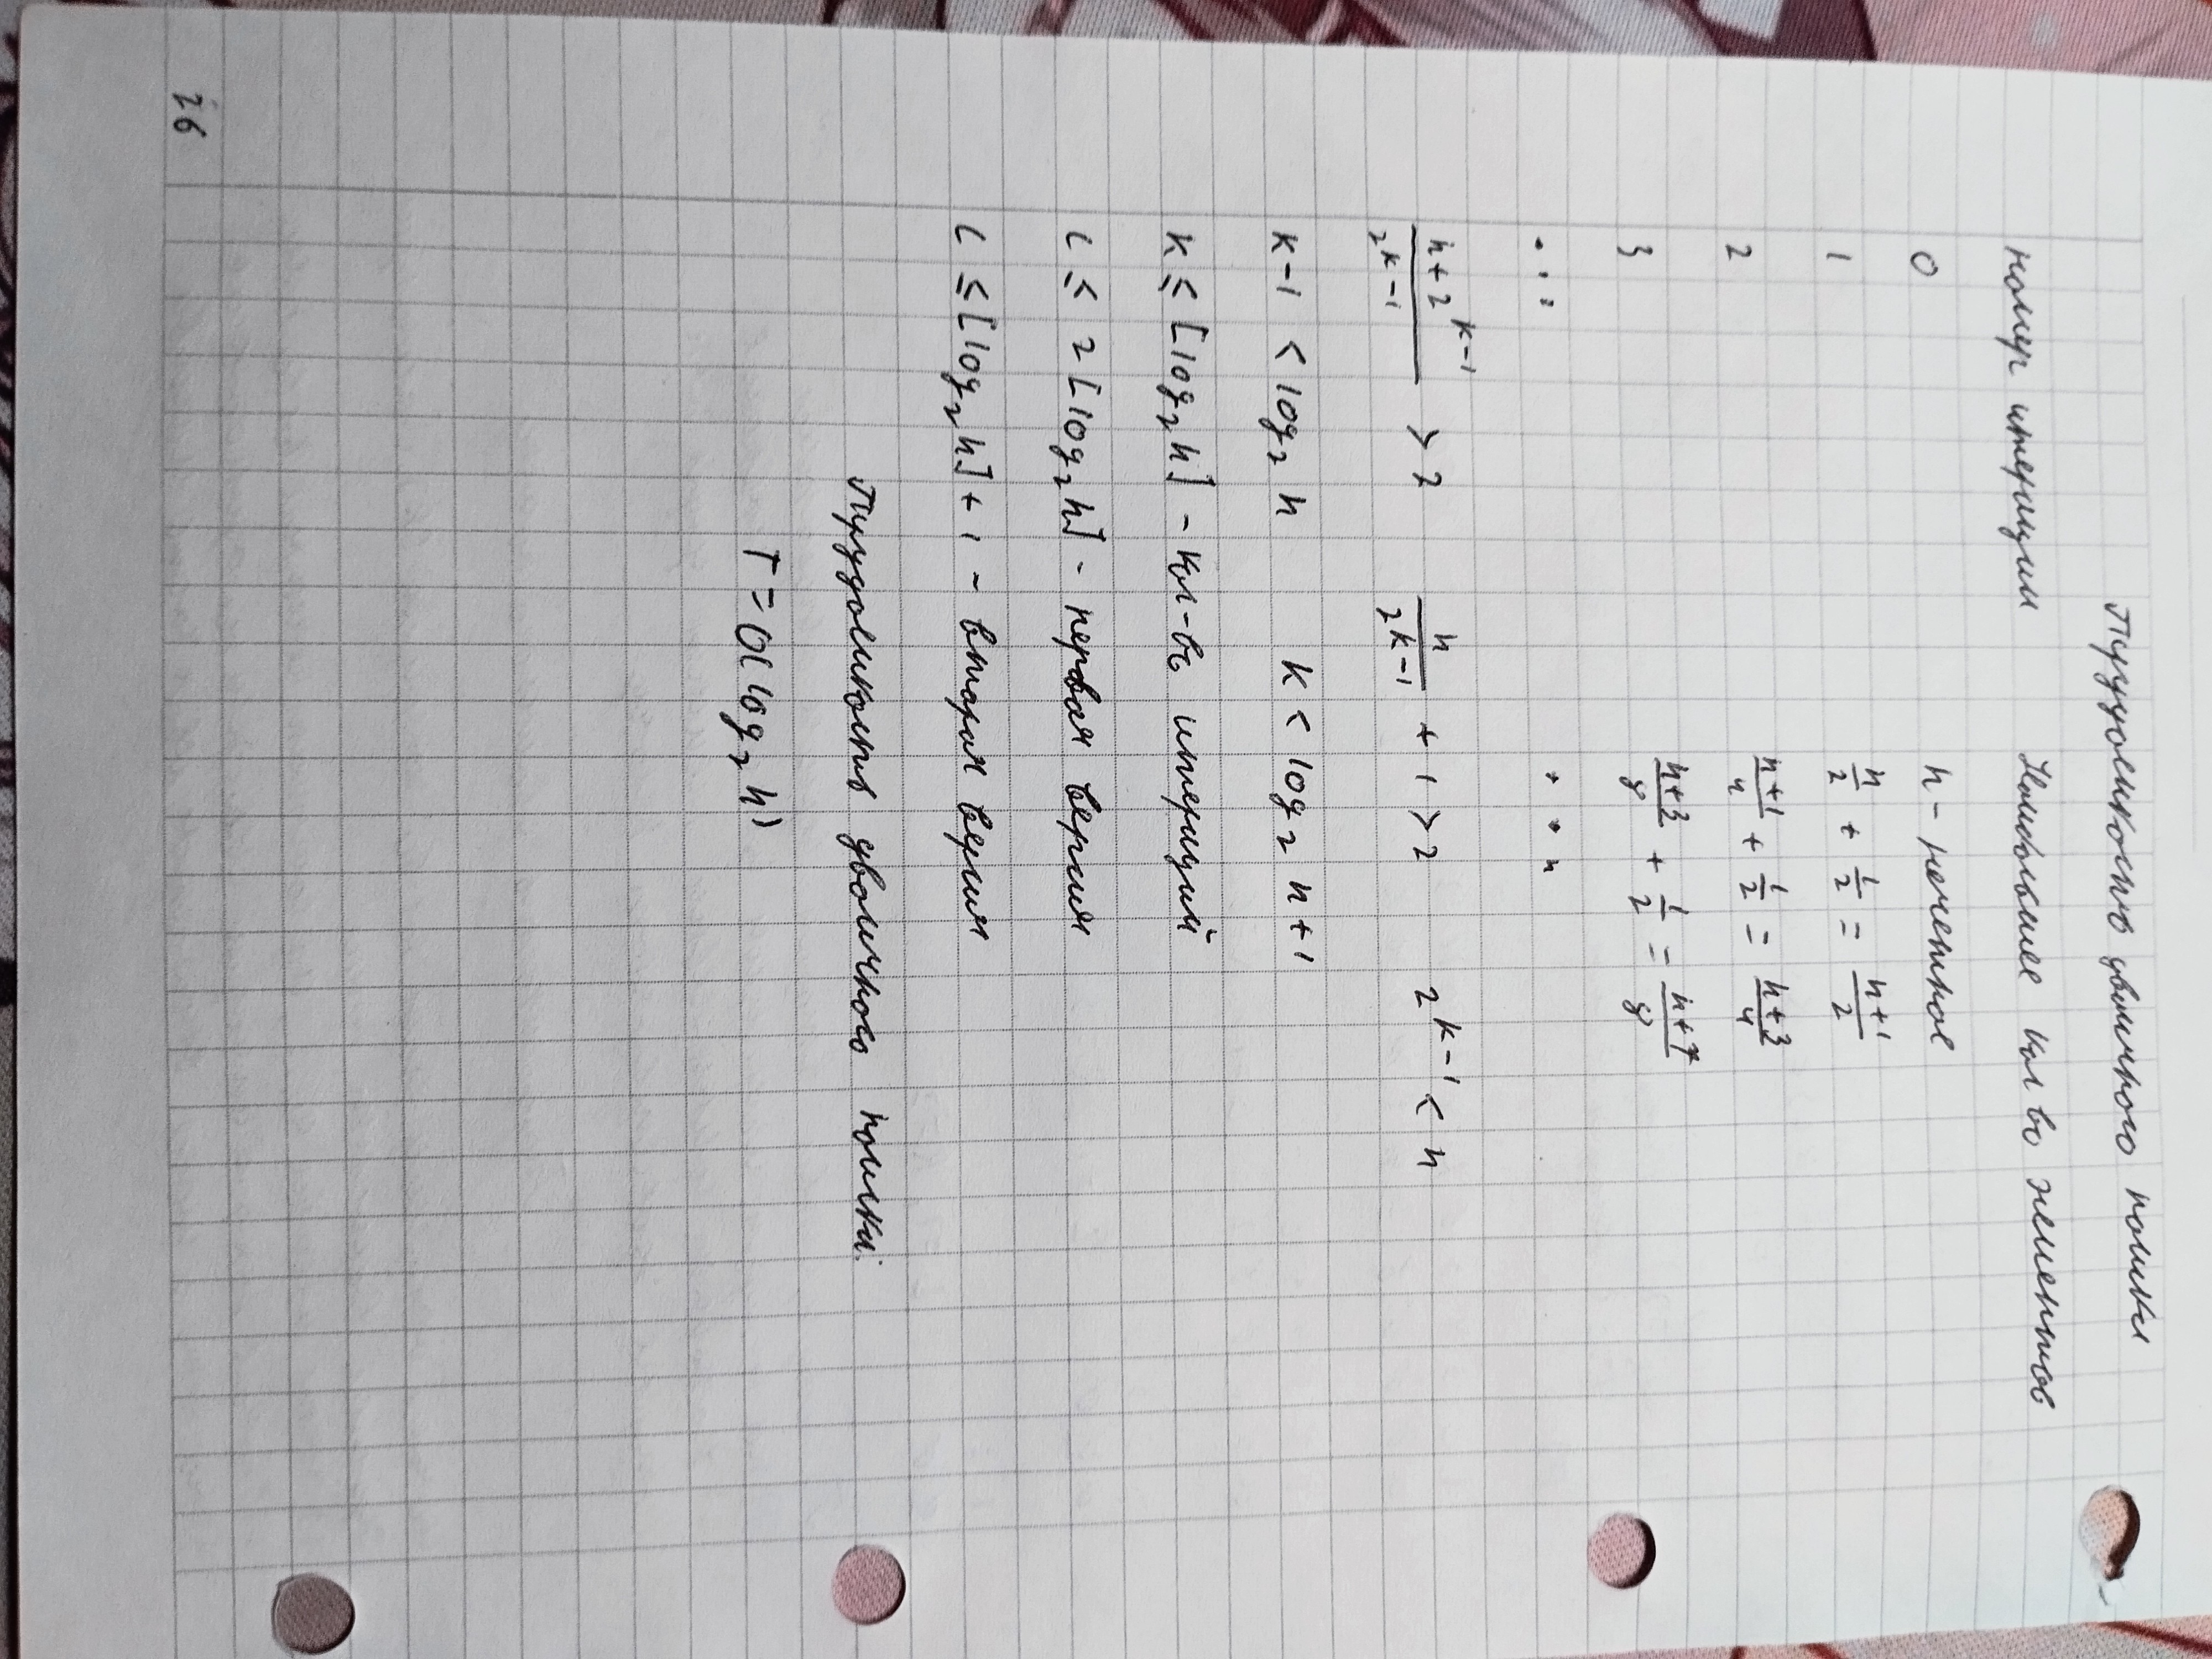 Трудоемкость двоичного поиска
номер итерации Наибольшее кол во элементов
0 n - нечетное
1 n/2 + 1/2 = (n+1)/2
2 (n+1)/4 + 1/2 = (n+3)/4
3 (n+3)/8 + 1/2 = (n+7)/8
... ...
(n+2^(k-1))/(2^(k-1)) > 2 n/(2^(k-1)) + 1 > 2 2^(k-1) < n
k-1 < log₂ n k < log₂ n + 1
k ≤ [log₂ n] - кол-во итераций
C ≤ 2[log₂ n] - первая версия
C ≤ [log₂ n] + 1 - вторая версия
Трудоемкость двоичного поиска:
T = O(log₂ n)
26